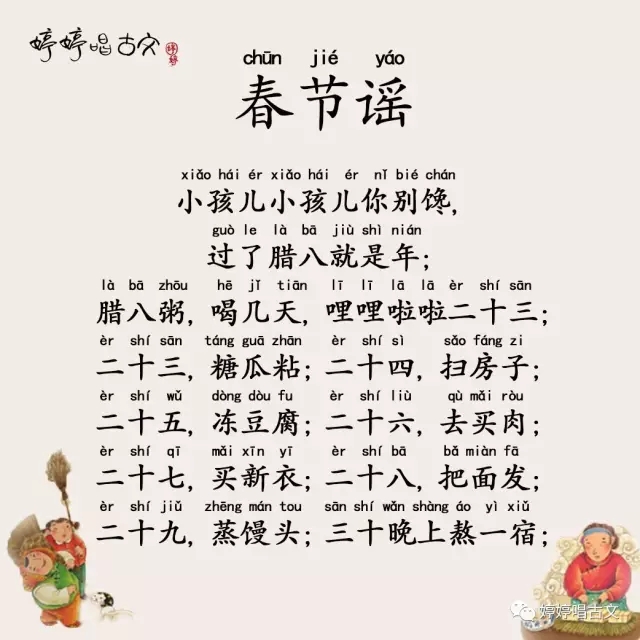 婷婷唱古文
chūn jié yáo
春节谣
xiǎo hái ér xiǎo hái ér nǐ bié chán
小孩儿小孩儿你别馋，
guò le là bā jiù shì nián
过了腊八就是年；
là bā zhōu hē jǐ tiān lī lī lā lā èr shí sān
腊八粥，喝几天，哩哩啦啦二十三；
èr shí sān táng guā zhān èr shí sì sǎo fáng zi
二十三，糖瓜粘；二十四，扫房子；
èr shí wǔ dòng dòu fu èr shí liù qù mǎi ròu
二十五，冻豆腐；二十六，去买肉；
èr shí qī mǎi xīn yī èr shí bā bǎ miàn fā
二十七，买新衣；二十八，把面发；
èr shí jiǔ zhēng mán tou sān shí wǎn shàng áo yì xiǔ
二十九，蒸馒头；三十晚上熬一宿；
婷婷唱古文